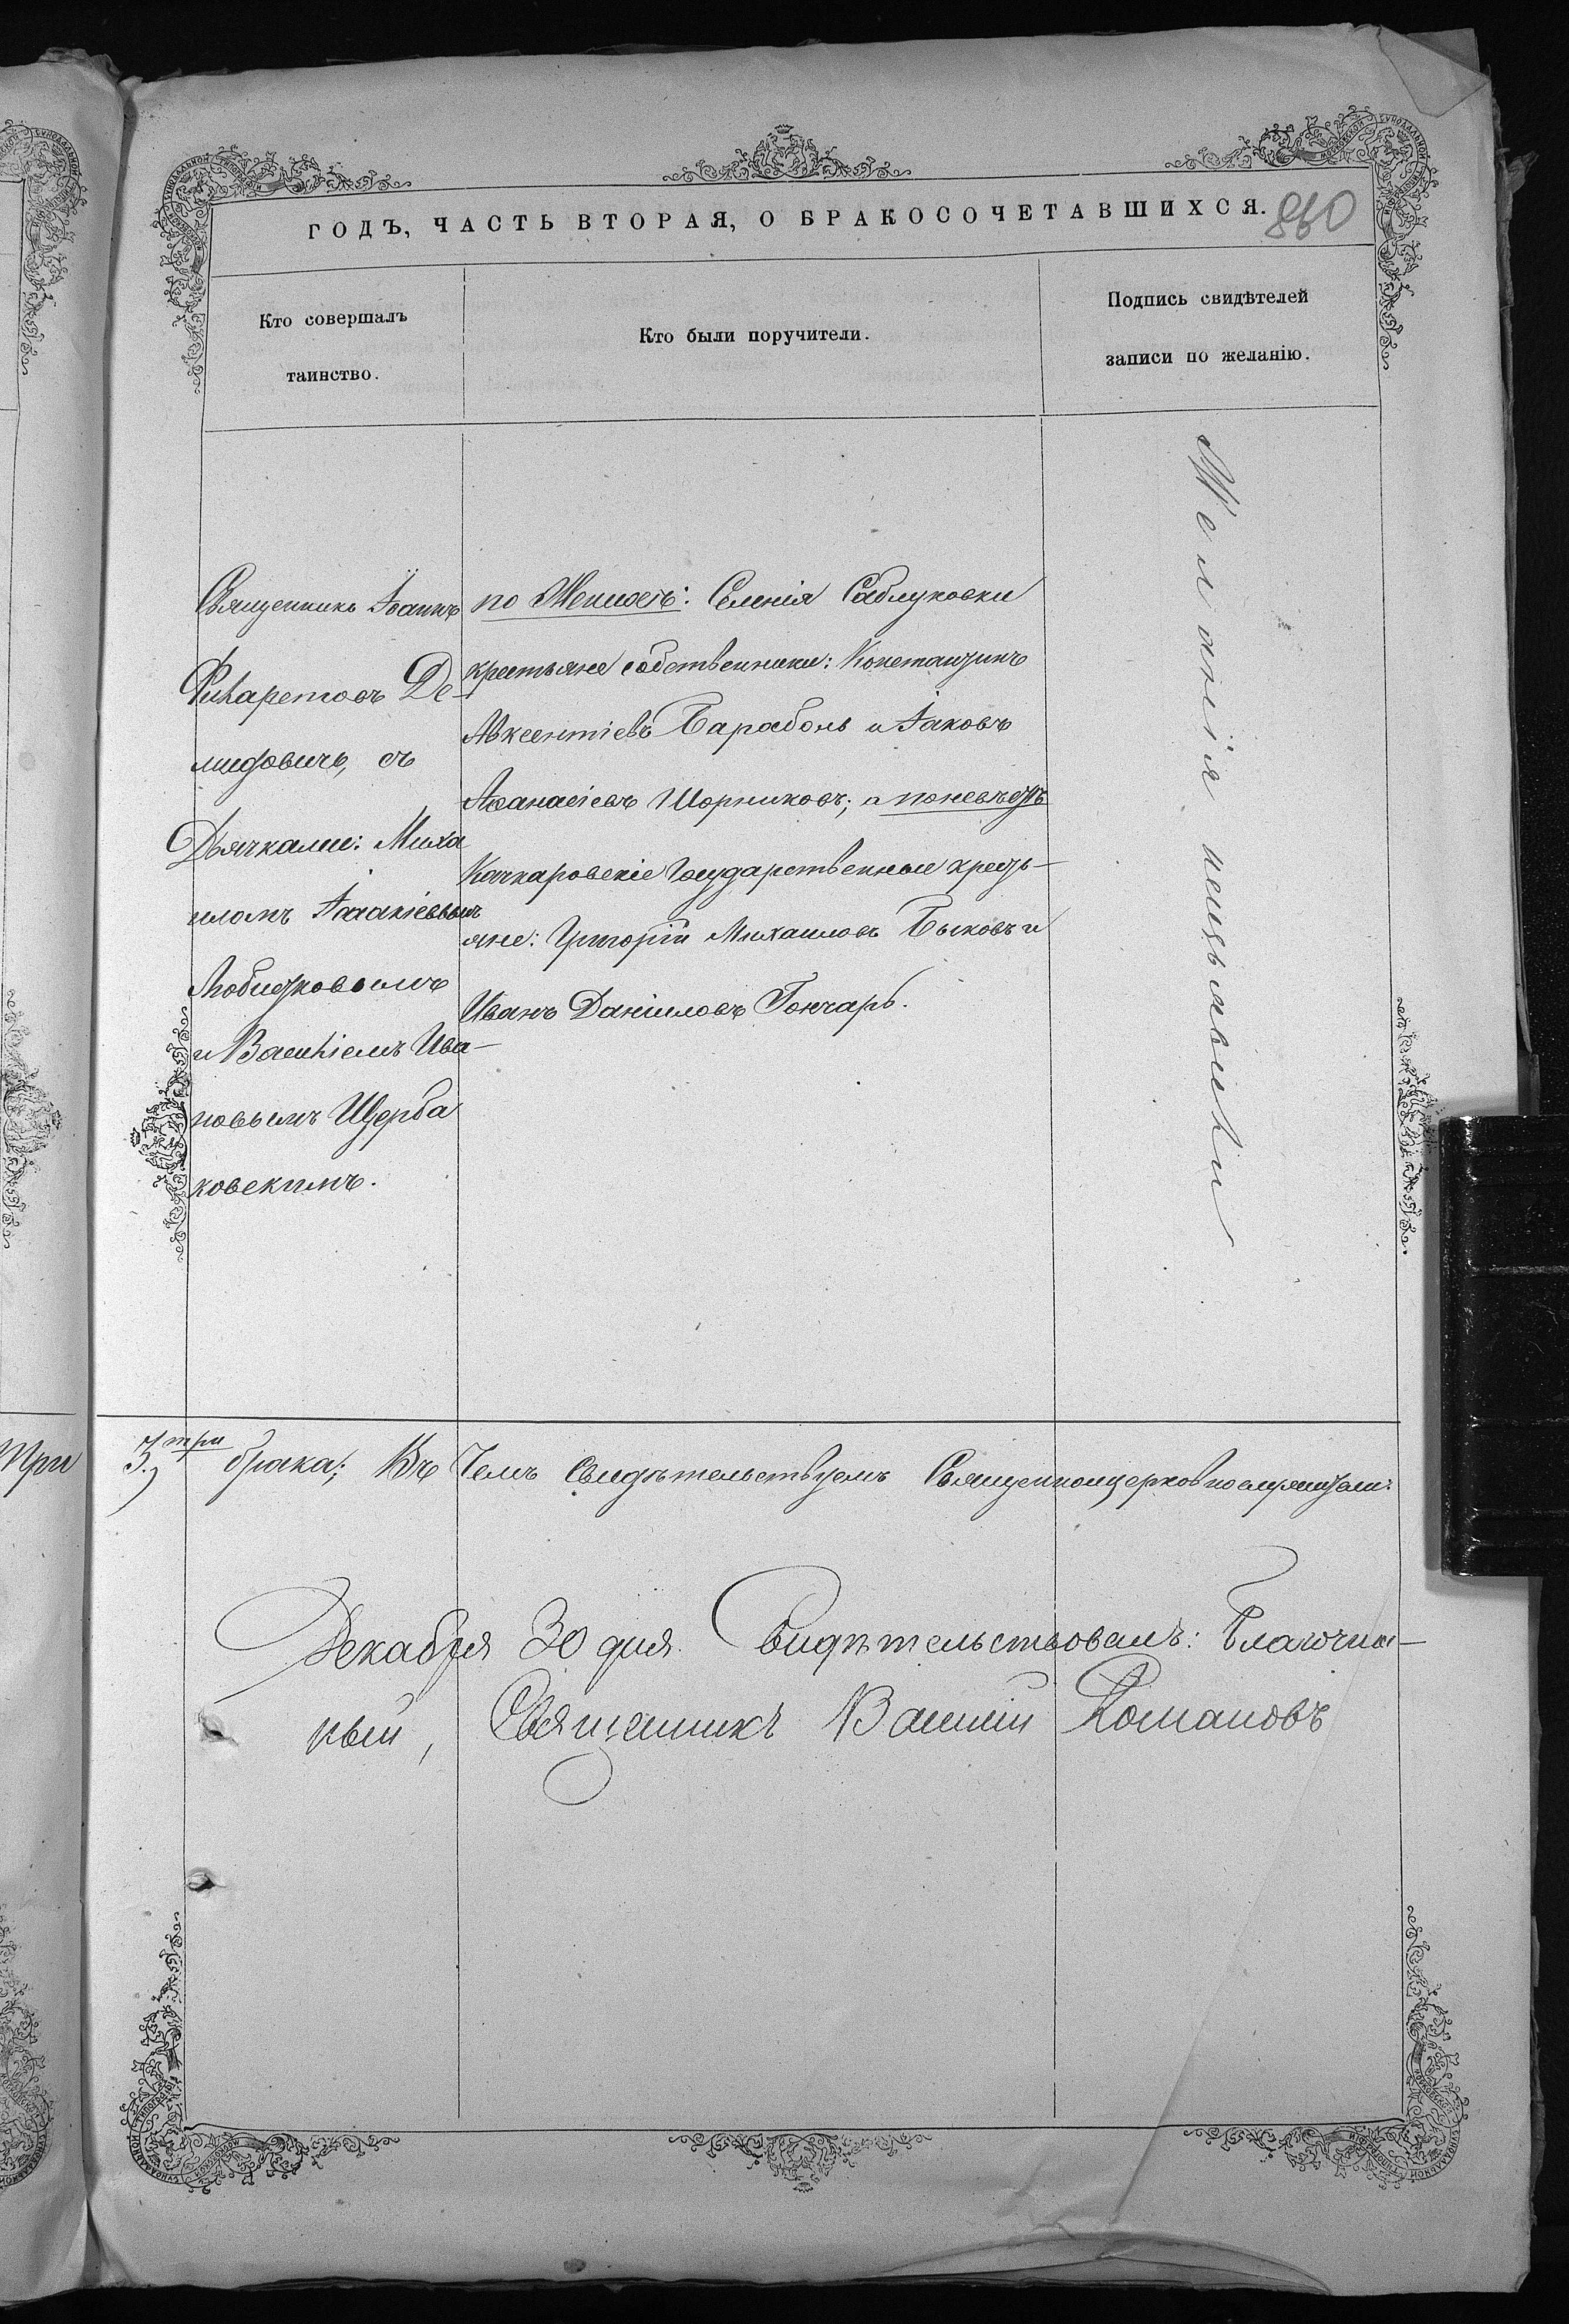 ГОДЪ, ЧАСТЬ ВТОРАЯ, О БРАКОСОЧЕТАВШИХСЯ.
860
Кто совершалъ
таинство.
Кто были поручители.
Подпись свидѣтелей
записи по желанію.
Священникъ Іоаннъ
Филаретовъ Де-
мидовичъ, съ
Дьячками: Миха
иломъ
и Василіемъ Ива-
новымъ Щерба
ковскимъ.
по Женихѣ: Селенія Саблуковки
крестьяне собственники: Константинъ
Авксентіевъ Бараболь и Іаковъ
Аѳанасіевъ Шорниковъ; а по невѣстѣ
Качкаровскіе Государственные кресть-
яне: Григорій Михаиловъ Быковъ и
Иванъ Даніиловъ Гончаръ.
Желанія неизъявили
три
3.) три брака; Въ Чемъ Свидѣтельствуемъ Священноцерковнослужители:
Декабря 30 дня. Свидѣтельствовалъ: Благочин-
ный, Священникъ Василій Романовъ